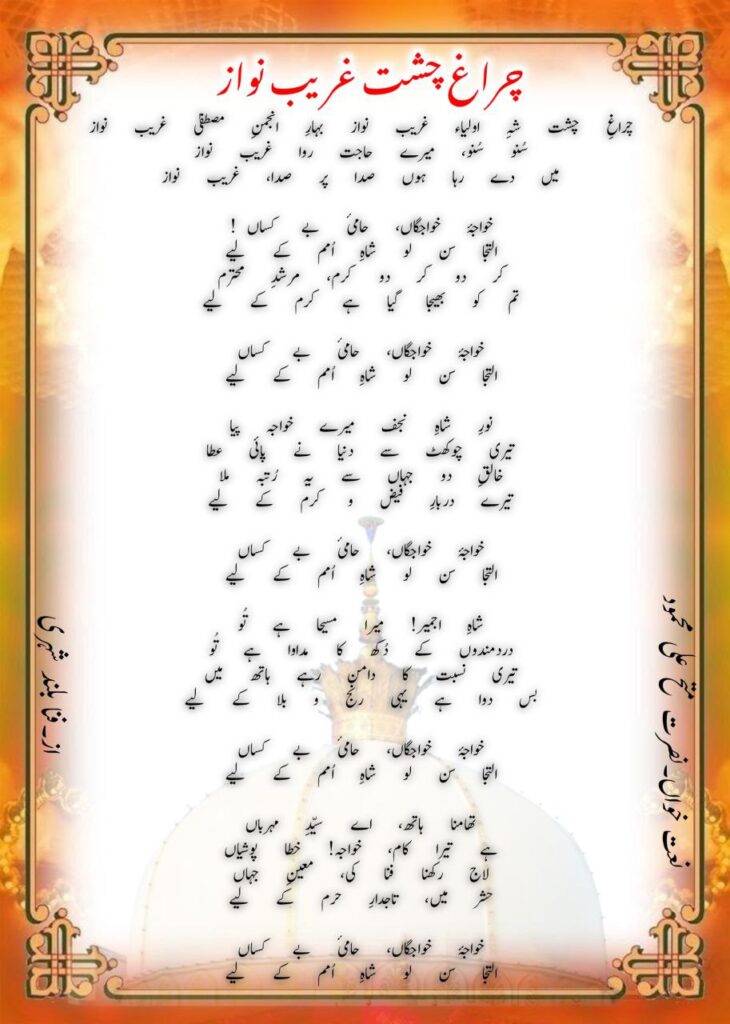 چراغِ چشت غریب نواز
چراغِ چشت شہِ اولیاء غریب نواز بہارِ انجمنِ مصطفیٰ غریب نواز
سُنو سُنو، میرے حاجت روا غریب نواز
میں دے رہا ہوں صدا پر صدا، غریب نواز
خواجۂ خواجگاں، حامیٔ بے کساں !
التجا سن لو شاہِ اُمم کے لیے
کر دو کر دو کرم، مرشدِ محترم
تم کو بھیجا گیا ہے کرم کے لیے
خواجۂ خواجگاں، حامیٔ بے کساں
التجا سن لو شاہِ اُمم کے لیے
نورِ شاہِ نجف میرے خواجہ پیا
تیری چوکھٹ سے دنیا نے پائی عطا
خالقِ دو جہاں سے یہ رُتبہ ملا
تیرے دربارِ فیض و کرم کے لیے
خواجۂ خواجگاں، حامیٔ بے کساں
التجا سن لو شاہِ اُمم کے لیے
شاہِ اجمیر! میرا مسیحا ہے تُو
دردمندوں کے دُکھ کا مداوا ہے تُو
تیری نسبت کا دامن رہے ہاتھ میں
بس دوا ہے یہی رنج و بلا کے لیے
خواجۂ خواجگاں، حامیٔ بے کساں
التجا سن لو شاہِ اُمم کے لیے
تھامنا ہاتھ، اے سیّدِ مہرباں
ہے تیرا کام، خواجہ! خطا پوشیاں
لاج رکھنا فنا کی، معینِ جہاں
حشر میں، تاجدارِ حرم کے لیے
خواجۂ خواجگاں، حامیٔ بے کساں
التجا سن لو شاہِ اُمم کے لیے
نعت خواں۔نصرت فتح علی محمود
از۔فنا بلند شہری